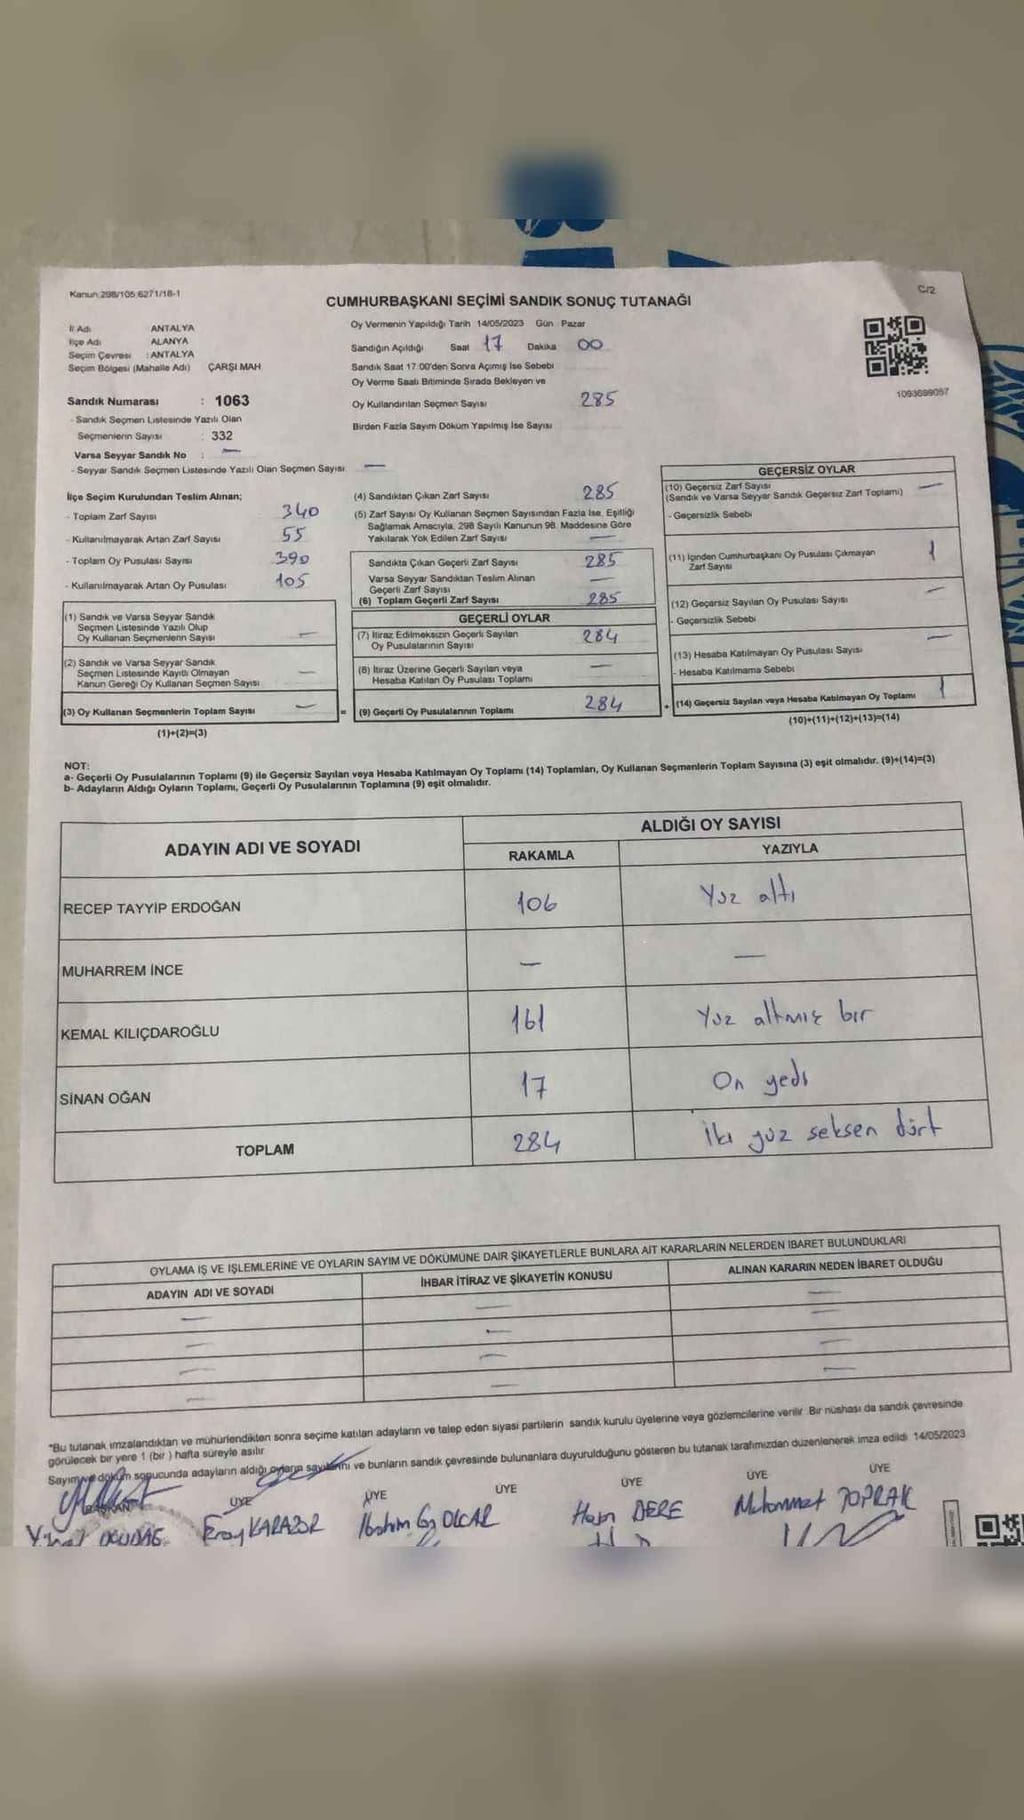 Kanun:298/105;6271/18-1
C/2
CUMHURBAŞKANI SEÇİMİ SANDIK SONUÇ TUTANAĞI
İl Adı ANTALYA
İlçe Adı ALANYA
Seçim Çevresi : ANTALYA
Seçim Bölgesi (Mahalle Adı) ÇARŞI MAH
Sandık Numarası : 1063
- Sandık Seçmen Listesinde Yazılı Olan
Seçmenlerin Sayısı : 332
Varsa Seyyar Sandık No : —
- Seyyar Sandık Seçmen Listesinde Yazılı Olan Seçmen Sayısı —
Oy Vermenin Yapıldığı Tarih 14/05/2023 Gün Pazar
Sandığın Açıldığı Saat 17 Dakika 00
Sandık Saat 17:00'den Sonra Açımış İse Sebebi
Oy Verme Saati Bitiminde Sırada Bekleyen ve
Oy Kullandırılan Seçmen Sayısı 285
Birden Fazla Sayım Döküm Yapılmış İse Sayısı
1093699057
İlçe Seçim Kurulundan Teslim Alınan;
- Toplam Zarf Sayısı 340
- Kullanılmayarak Artan Zarf Sayısı 55
- Toplam Oy Pusulası Sayısı 390
- Kullanılmayarak Artan Oy Pusulası 105
(1) Sandık ve Varsa Seyyar Sandık
Seçmen Listesinde Yazılı Olup
Oy Kullanan Seçmenlerin Sayısı —
(2) Sandık ve Varsa Seyyar Sandık
Seçmen Listesinde Kayıtlı Olmayan
Kanun Gereği Oy Kullanan Seçmen Sayısı —
(3) Oy Kullanan Seçmenlerin Toplam Sayısı —
(1)+(2)=(3)
(4) Sandıktan Çıkan Zarf Sayısı 285
(5) Zarf Sayısı Oy Kullanan Seçmen Sayısından Fazla İse, Eşitliği
Sağlamak Amacıyla, 298 Sayılı Kanunun 98. Maddesine Göre
Yakılarak Yok Edilen Zarf Sayısı —
Sandıkta Çıkan Geçerli Zarf Sayısı 285
Varsa Seyyar Sandıktan Teslim Alınan
Geçerli Zarf Sayısı —
(6) Toplam Geçerli Zarf Sayısı 285
GEÇERLİ OYLAR
(7) İtiraz Edilmeksizin Geçerli Sayılan
Oy Pusulalarının Sayısı 284
(8) İtiraz Üzerine Geçerli Sayılan veya
Hesaba Katılan Oy Pusulası Toplamı —
= (9) Geçerli Oy Pusulalarının Toplamı 284
GEÇERSİZ OYLAR
(10) Geçersiz Zarf Sayısı —
(Sandık ve Varsa Seyyar Sandık Geçersiz Zarf Toplamı)
- Geçersizlik Sebebi
(11) İçinden Cumhurbaşkanı Oy Pusulası Çıkmayan 1
Zarf Sayısı
(12) Geçersiz Sayılan Oy Pusulası Sayısı —
- Geçersizlik Sebebi
(13) Hesaba Katılmayan Oy Pusulası Sayısı —
- Hesaba Katılmama Sebebi
+ (14) Geçersiz Sayılan veya Hesaba Katılmayan Oy Toplamı 1
(10)+(11)+(12)+(13)=(14)
NOT:
a- Geçerli Oy Pusulalarının Toplamı (9) ile Geçersiz Sayılan veya Hesaba Katılmayan Oy Toplamı (14) Toplamları, Oy Kullanan Seçmenlerin Toplam Sayısına (3) eşit olmalıdır. (9)+(14)=(3)
b- Adayların Aldığı Oyların Toplamı, Geçerli Oy Pusulalarının Toplamına (9) eşit olmalıdır.
ADAYIN ADI VE SOYADI ALDIĞI OY SAYISI
RAKAMLA YAZIYLA
RECEP TAYYİP ERDOĞAN 106 Yüz altı
MUHARREM İNCE — —
KEMAL KILIÇDAROĞLU 161 Yüz altmış bir
SİNAN OĞAN 17 On yedi
TOPLAM 284 İki yüz seksen dört
OYLAMA İŞ VE İŞLEMLERİNE VE OYLARIN SAYIM VE DÖKÜMÜNE DAİR ŞİKAYETLERLE BUNLARA AİT KARARLARIN NELERDEN İBARET BULUNDUKLARI
ADAYIN ADI VE SOYADI İHBAR İTİRAZ VE ŞİKAYETİN KONUSU ALINAN KARARIN NEDEN İBARET OLDUĞU
— — —
— — —
— — —
— — —
*Bu tutanak imzalandıktan ve mühürlendikten sonra seçime katılan adayların ve talep eden siyasi partilerin sandık kurulu üyelerine veya gözlemcilerine verilir. Bir nüshası da sandık çevresinde
görülecek bir yere 1 (bir ) hafta süreyle asılır.
Sayım ve döküm sonucunda adayların aldığı oyların sayılarını ve bunların sandık çevresinde bulunanlara duyurulduğunu gösteren bu tutanak tarafımızdan düzenlenerek imza edildi 14/05/2023
BAŞKAN ÜYE ÜYE ÜYE ÜYE ÜYE ÜYE
Eray KARAZOR İbrahim OLCAR DERE Muhammet TOPRAK